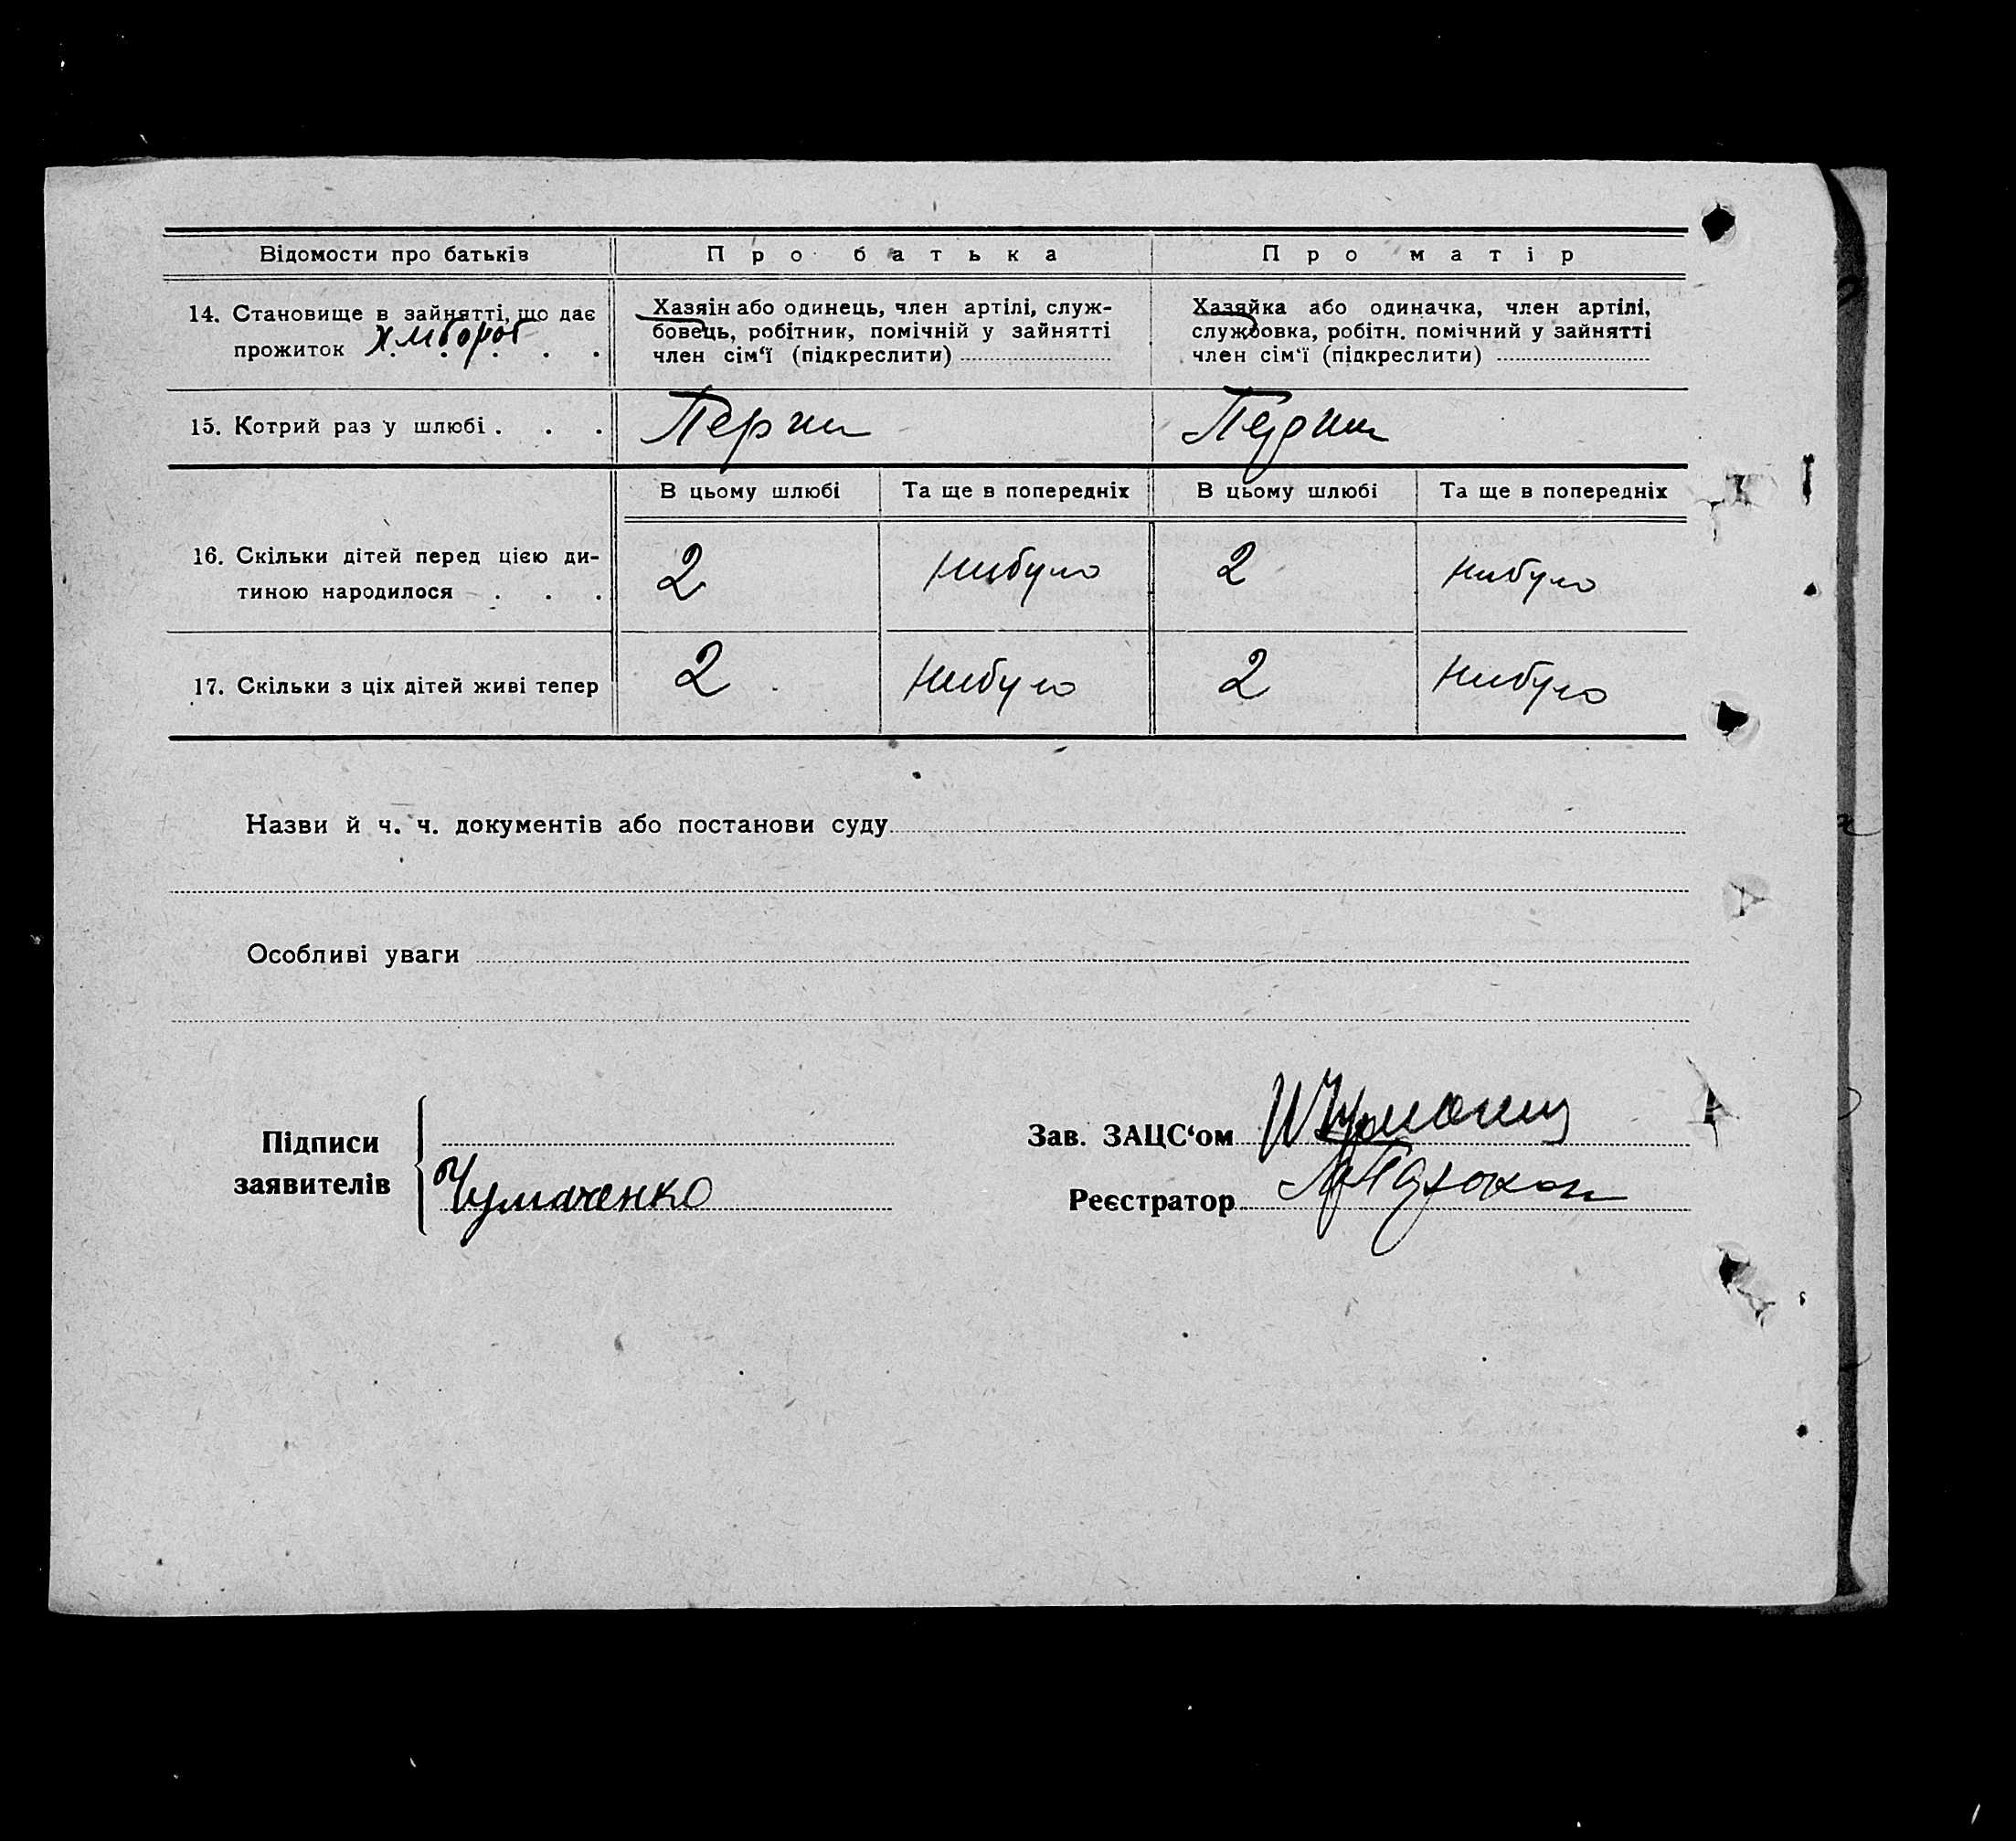 Відомости про батьків
Про батька
Про матір
14. Становище в зайнятті, що дає
прожиток . . . . .
Хазяін або одинець, член артілі, служ-
бовець, робітник, помічній у зайнятті
член сім‘ї (підкреслити)
Хазяйка або одиначка, член артілі,
службовка, робітн. помічний у зайнятті
член сім‘ї (підкреслити)
15. Котрий раз у шлюбі . . .
Перши
Перши
В цьому шлюбі
Та ще в попередніх
В цьому шлюбі
Та ще в попередніх
16. Скільки дітей перед цією ди-
тиною народилося . . .
2
нибуло
2
нибуло
17. Скільки з ціх дітей живі тепер
2
нибуло
2
нибуло
Назви й ч. ч. документів або постанови суду
Особливі уваги
Підписи
заявителів
Чумаченко
Зав. ЗАЦС‘ом
Реєстратор